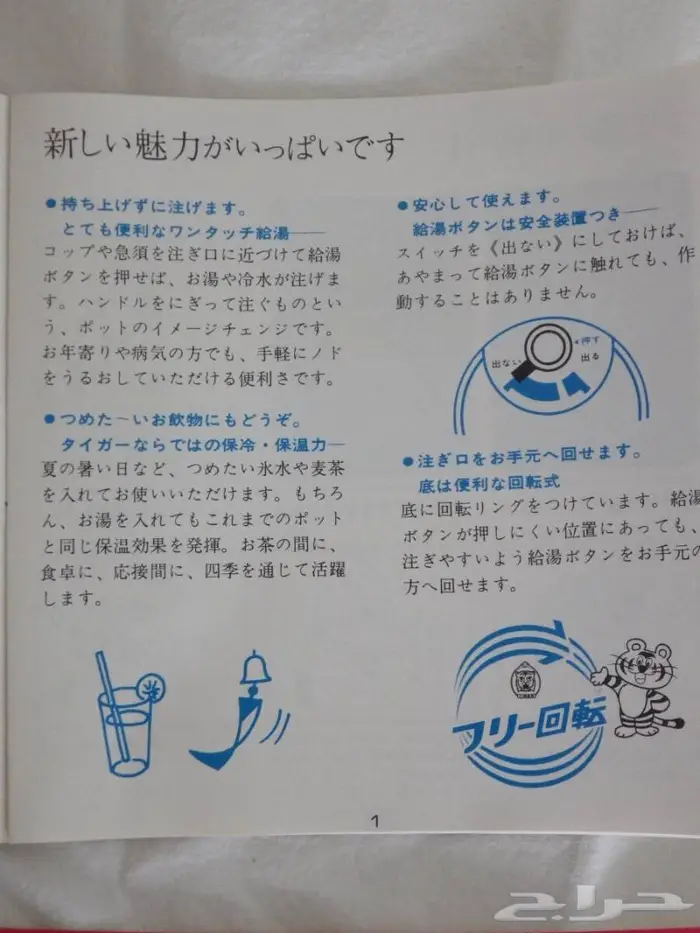 新しい魅力がいっぱいです
●持ち上げずに注げます。
とても便利なワンタッチ給湯――
コップや急須を注ぎ口に近づけて給湯
ボタンを押せば、お湯や冷水が注げま
す。ハンドルをにぎって注ぐものとい
う、ポットのイメージチェンジです。
お年寄りや病気の方でも、手軽にノド
をうるおしていただける便利さです。
●つめた〜いお飲物にもどうぞ。
タイガーならではの保冷・保温力―
夏の暑い日など、つめたい氷水や麦茶
を入れてお使いいただけます。もちろ
ん、お湯を入れてもこれまでのポット
と同じ保温効果を発揮。お茶の間に、
食卓に、応接間に、四季を通じて活躍
します。
●安心して使えます。
給湯ボタンは安全装置つき――
スイッチを《出ない》にしておけば、
あやまって給湯ボタンに触れても、作
動することはありません。
◂押す
出ない
出る
●注ぎ口をお手元へ回せます。
底は便利な回転式
底に回転リングをつけています。給湯
ボタンが押しにくい位置にあっても、
注ぎやすいよう給湯ボタンをお手元の
方へ回せます。
フリー回転
1
حراج